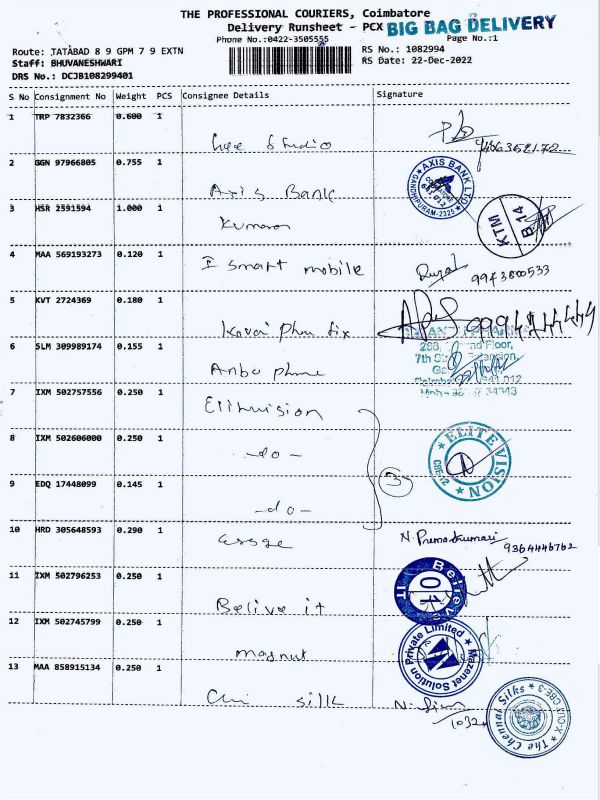 THE PROFESSIONAL COURIERS, Coimbatore
Delivery Runsheet - PCX BIG BAG DELIVERY
Phone No.:0422-3505555 Page No.:1
Route: TATABAD 8 9 GPM 7 9 EXTN RS No.: 1082994
Staff: BHUVANESHWARI RS Date: 22-Dec-2022
DRS No.: DCJB108299401
S No Consignment No Weight PCS Consignee Details Signature
1 TRP 7832366 0.600 1
Studio
2 GGN 97966805 0.755 1
Axis Bank
AXIS BANK LTD.
GANDHIPURAM-2325
3 HSR 2591594 1.000 1
Kumaran
KTM B 14
4 MAA 569193273 0.120 1
I smart mobile
9943800533
5 KVT 2724369 0.180 1
Kovai phone fix
6 SLM 309989174 0.155 1
Anbu phone
7 IXM 502757556 0.250 1
Elitevision
8 IXM 502606000 0.250 1
-do-
ELITE VISION
CBE-12
9 EDQ 17448099 0.145 1
-do-
10 HRD 305648593 0.290 1
essge
N. Premakumari
9364446762
11 IXM 502796253 0.250 1
Belive it
Believe IT
01
12 IXM 502745799 0.250 1
magnut
Mazenet Solution Private Limited
13 MAA 858915134 0.250 1
silk
The Chennai Silks
CBE-3